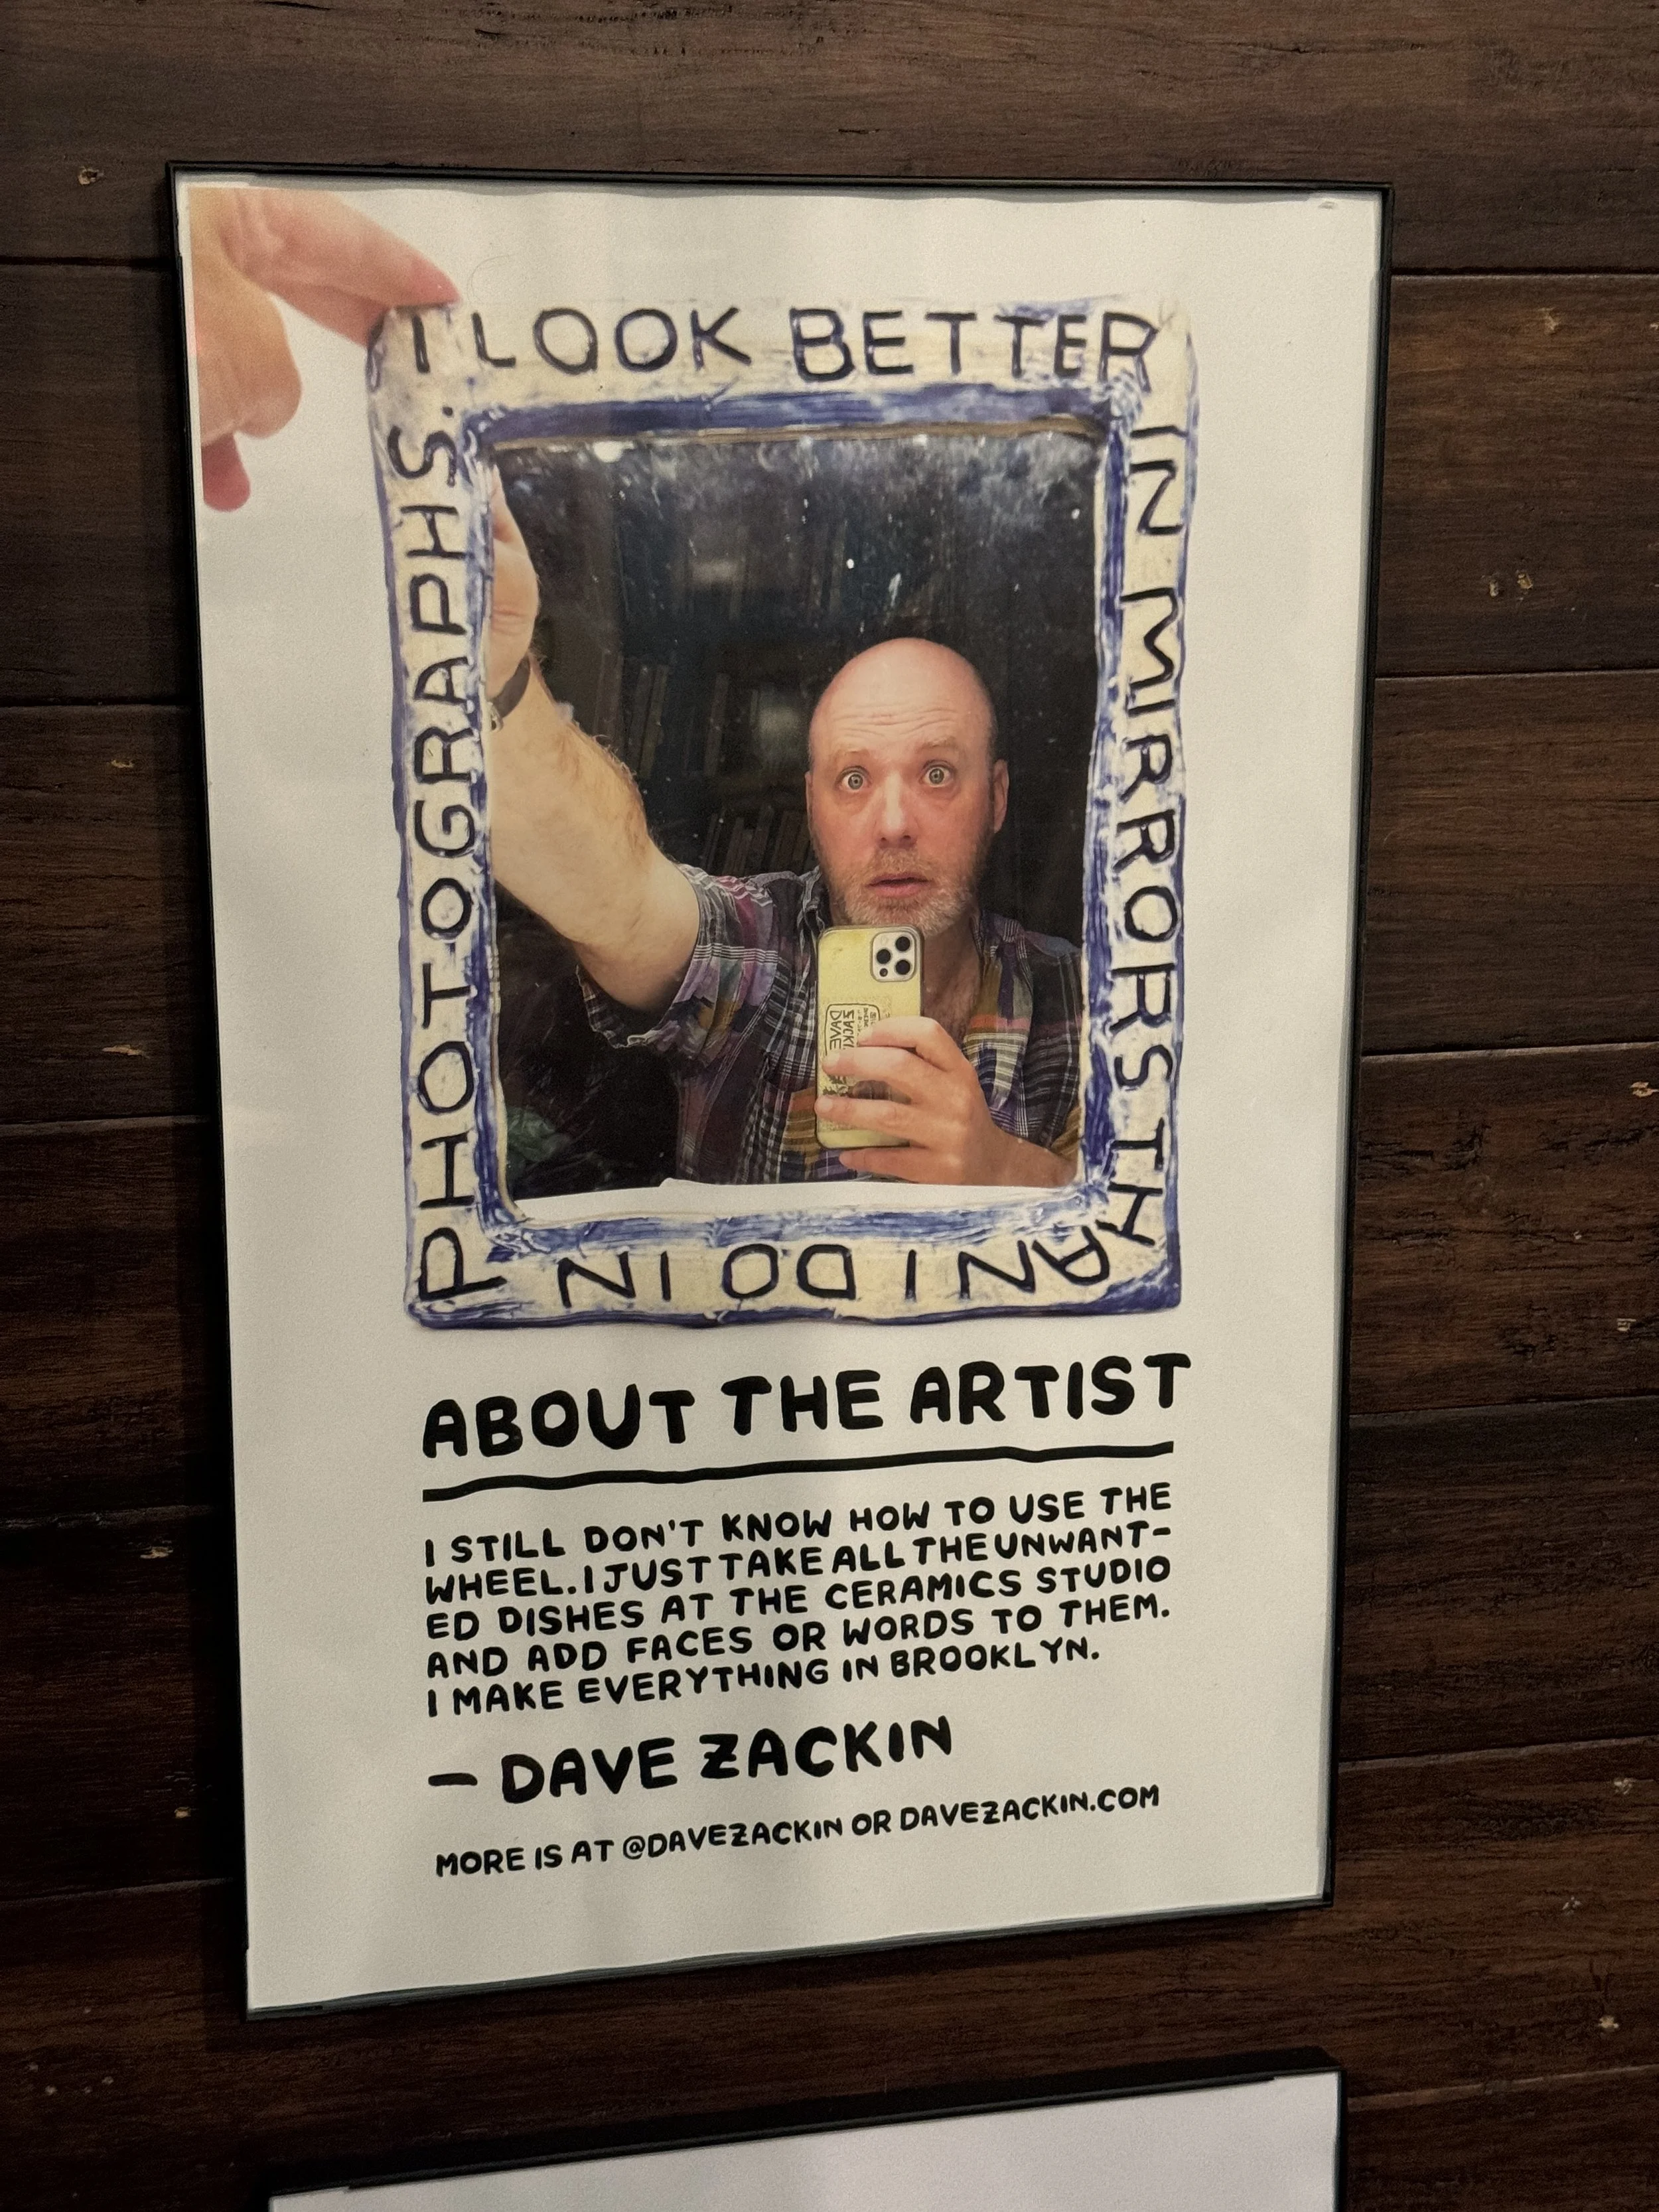 I LOOK BETTER
IN MIRRORS THAN
I DO IN
PHOTOGRAPHS.
ZACKI
DAVE
ABOUT THE ARTIST
I STILL DON'T KNOW HOW TO USE THE
WHEEL. I JUST TAKE ALL THE UNWANT-
ED DISHES AT THE CERAMICS STUDIO
AND ADD FACES OR WORDS TO THEM.
I MAKE EVERYTHING IN BROOKLYN.
— DAVE ZACKIN
MORE IS AT @DAVEZACKIN OR DAVEZACKIN.COM